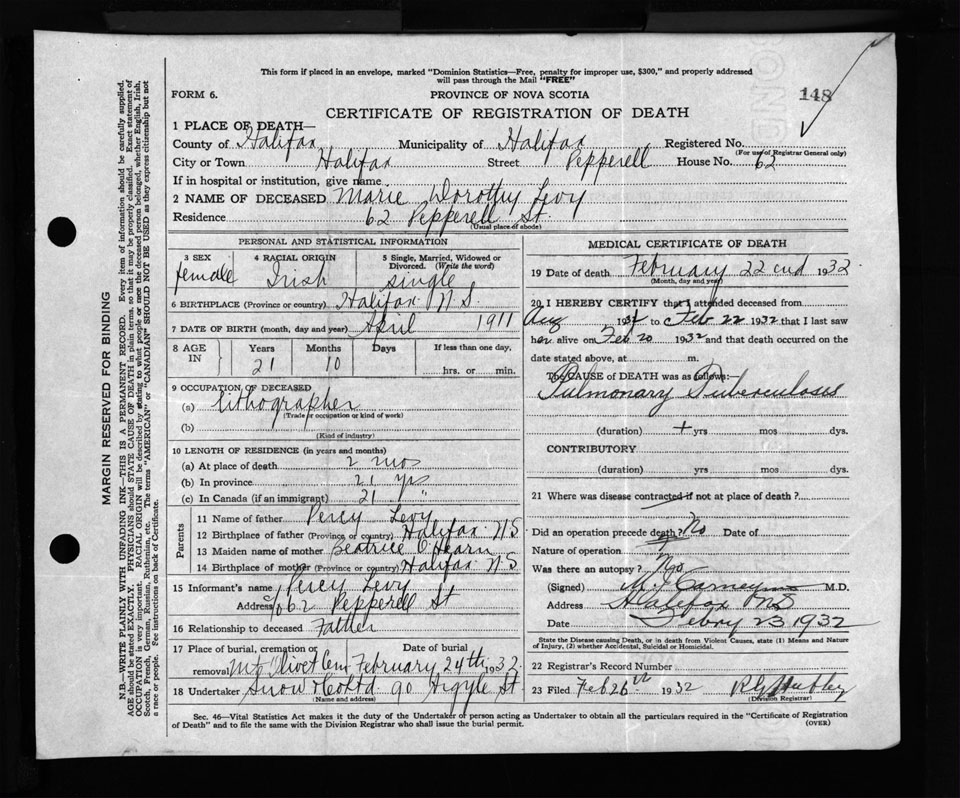 This form if placed in an envelope, marked "Dominion Statistics—Free, penalty for improper use, $300," and properly addressed
will pass through the Mail "FREE"
FORM 6.
PROVINCE OF NOVA SCOTIA
148
CERTIFICATE OF REGISTRATION OF DEATH
1 PLACE OF DEATH—
County of Halifax Municipality of Halifax Registered No.
(For use of Registrar General only)
City or Town Halifax Street Pepperell House No. 62
If in hospital or institution, give name
2 NAME OF DECEASED Marie Dorothy Levy
Residence 62 Pepperell St.
(Usual place of abode)
PERSONAL AND STATISTICAL INFORMATION
3 SEX 4 RACIAL ORIGIN 5 Single, Married, Widowed or
Divorced. (Write the word)
female Irish single
6 BIRTHPLACE (Province or country) Halifax N.S.
7 DATE OF BIRTH (month, day and year) April 1911
8 AGE IN Years Months Days If less than one day,
21 10 hrs. or min.
9 OCCUPATION OF DECEASED
(a) lithographer
(Trade or occupation or kind of work)
(b)
(Kind of industry)
10 LENGTH OF RESIDENCE (in years and months)
(a) At place of death 2 mos
(b) In province 21 yrs
(c) In Canada (if an immigrant) 21 "
Parents
11 Name of father Percy Levy
12 Birthplace of father (Province or country) Halifax N.S.
13 Maiden name of mother Beatrice O'Hearn
14 Birthplace of mother (Province or country) Halifax N.S
15 Informant's name Percy Levy
Address 62 Pepperell St
16 Relationship to deceased Father
17 Place of burial, cremation or Date of burial
removal Mt Olivet Cem February 24th 1932
18 Undertaker Snow & Co Ltd 90 Argyle St
(Name and address)
MEDICAL CERTIFICATE OF DEATH
19 Date of death February 22nd 1932
(Month, day and year)
20 I HEREBY CERTIFY that I attended deceased from
Aug 1931 to Feb 22 1932 that I last saw
her alive on Feb 20 1932 and that death occurred on the
date stated above, at m.
The CAUSE of DEATH was as follows:—
Pulmonary Tuberculosis
(duration) + yrs mos dys.
CONTRIBUTORY
(duration) yrs mos dys.
21 Where was disease contracted if not at place of death?
Did an operation precede death? No Date of
Nature of operation
Was there an autopsy? No
(Signed) M.D.
Address Halifax NS
Date Febry 23 1932
State the Disease causing Death, or in death from Violent Causes, state (1) Means and Nature
of Injury, (2) whether Accidental, Suicidal or Homicidal.
22 Registrar's Record Number
23 Filed Feb 26 1932
(Division Registrar)
Sec. 46—Vital Statistics Act makes it the duty of the Undertaker or person acting as Undertaker to obtain all the particulars required in the "Certificate of Registration
of Death" and to file the same with the Division Registrar who shall issue the burial permit. (OVER)
MARGIN RESERVED FOR BINDING
N.B.—WRITE PLAINLY WITH UNFADING INK—THIS IS A PERMANENT RECORD. Every item of information should be carefully supplied.
AGE should be stated EXACTLY. PHYSICIANS should STATE CAUSE OF DEATH in plain terms, so that it may be properly classified. Exact statement of
OCCUPATION is very important. RACIAL ORIGIN will be described by stating to what people or race the deceased person belonged, whether English, Irish,
Scotch, French, German, Russian, Ruthenian, etc. The terms "AMERICAN" or "CANADIAN" SHOULD NOT BE USED as they express citizenship but not
a race or people. See instructions on back of Certificate.